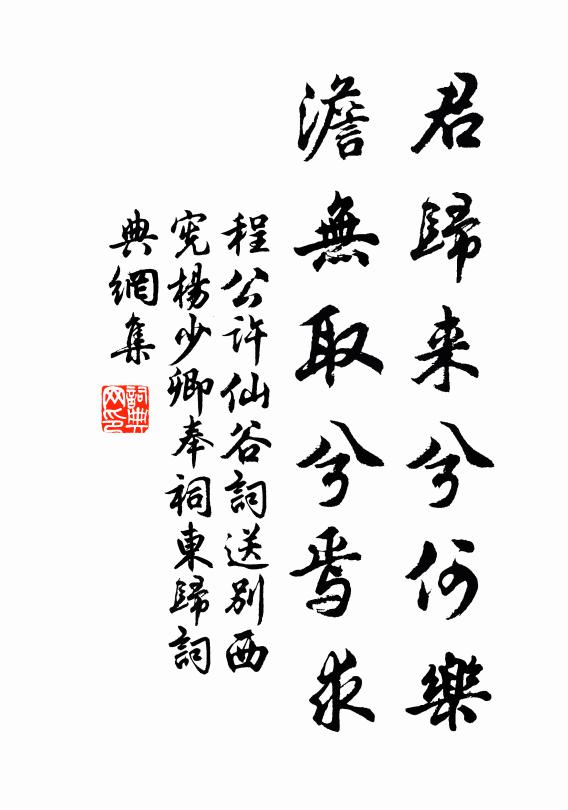 君歸来兮何樂
澹無取兮焉求
程公許仙谷詞送別西
憲楊少卿奉祠東歸詞
典網集
詞典
网印